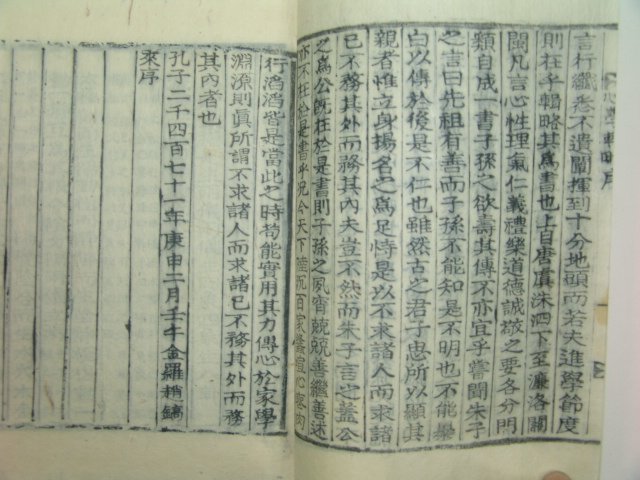 言行纖悉不遺闡揮到十分地頭而若夫進學節度
則在乎輯略其爲書也上自唐虞洙泗下至濂洛關
閩凡言心性理氣仁義禮樂道德誠敬之要各分門
類自成一書子孫之欲壽其傳不亦宜乎嘗聞朱子
之言曰先祖有善而子孫不能知是不明也不能擧
白以傳於後是不仁也雖然古之君子忠所以顯其
親者惟立身揚名之爲足恃是以不求諸人而求諸
己不務其外而務其內夫豈不然而朱子言之蓋公
之爲公旣在於是書則子孫之夙宵兢兢善繼善述
亦不在於是書乎況今天下陸沉百家喧心
行滔滔皆是當此之時苟能實用其力傳心於家學
淵源則眞所謂不求諸人而求諸己不務其外而務
其內者也
孔子二千四百七十一年庚申二月壬午金羅趙鏞
來序
心學輯略序